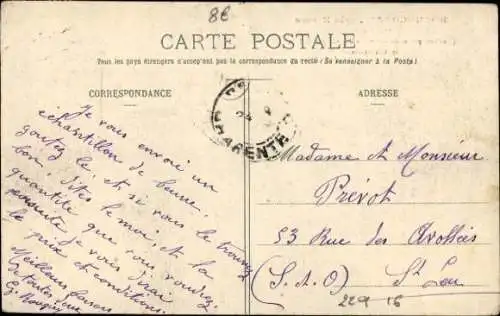 8€
CARTE POSTALE
Tous les pays étrangers n'acceptent pas la correspondance au recto (Se renseigner à la Poste)
CORRESPONDANCE
ADRESSE
CHARENTE
Je vous envoi un
échantillon de beurre.
goutez le et si vous le trouvez
bon, dites le moi, et la
quantité que vous voudrez
je vous dirai
le prix et conditions.
Meilleurs baisers
de toutes
Madame et Monsieur
Prévot
53 Rue des
(S. & O) St Leu
229 16